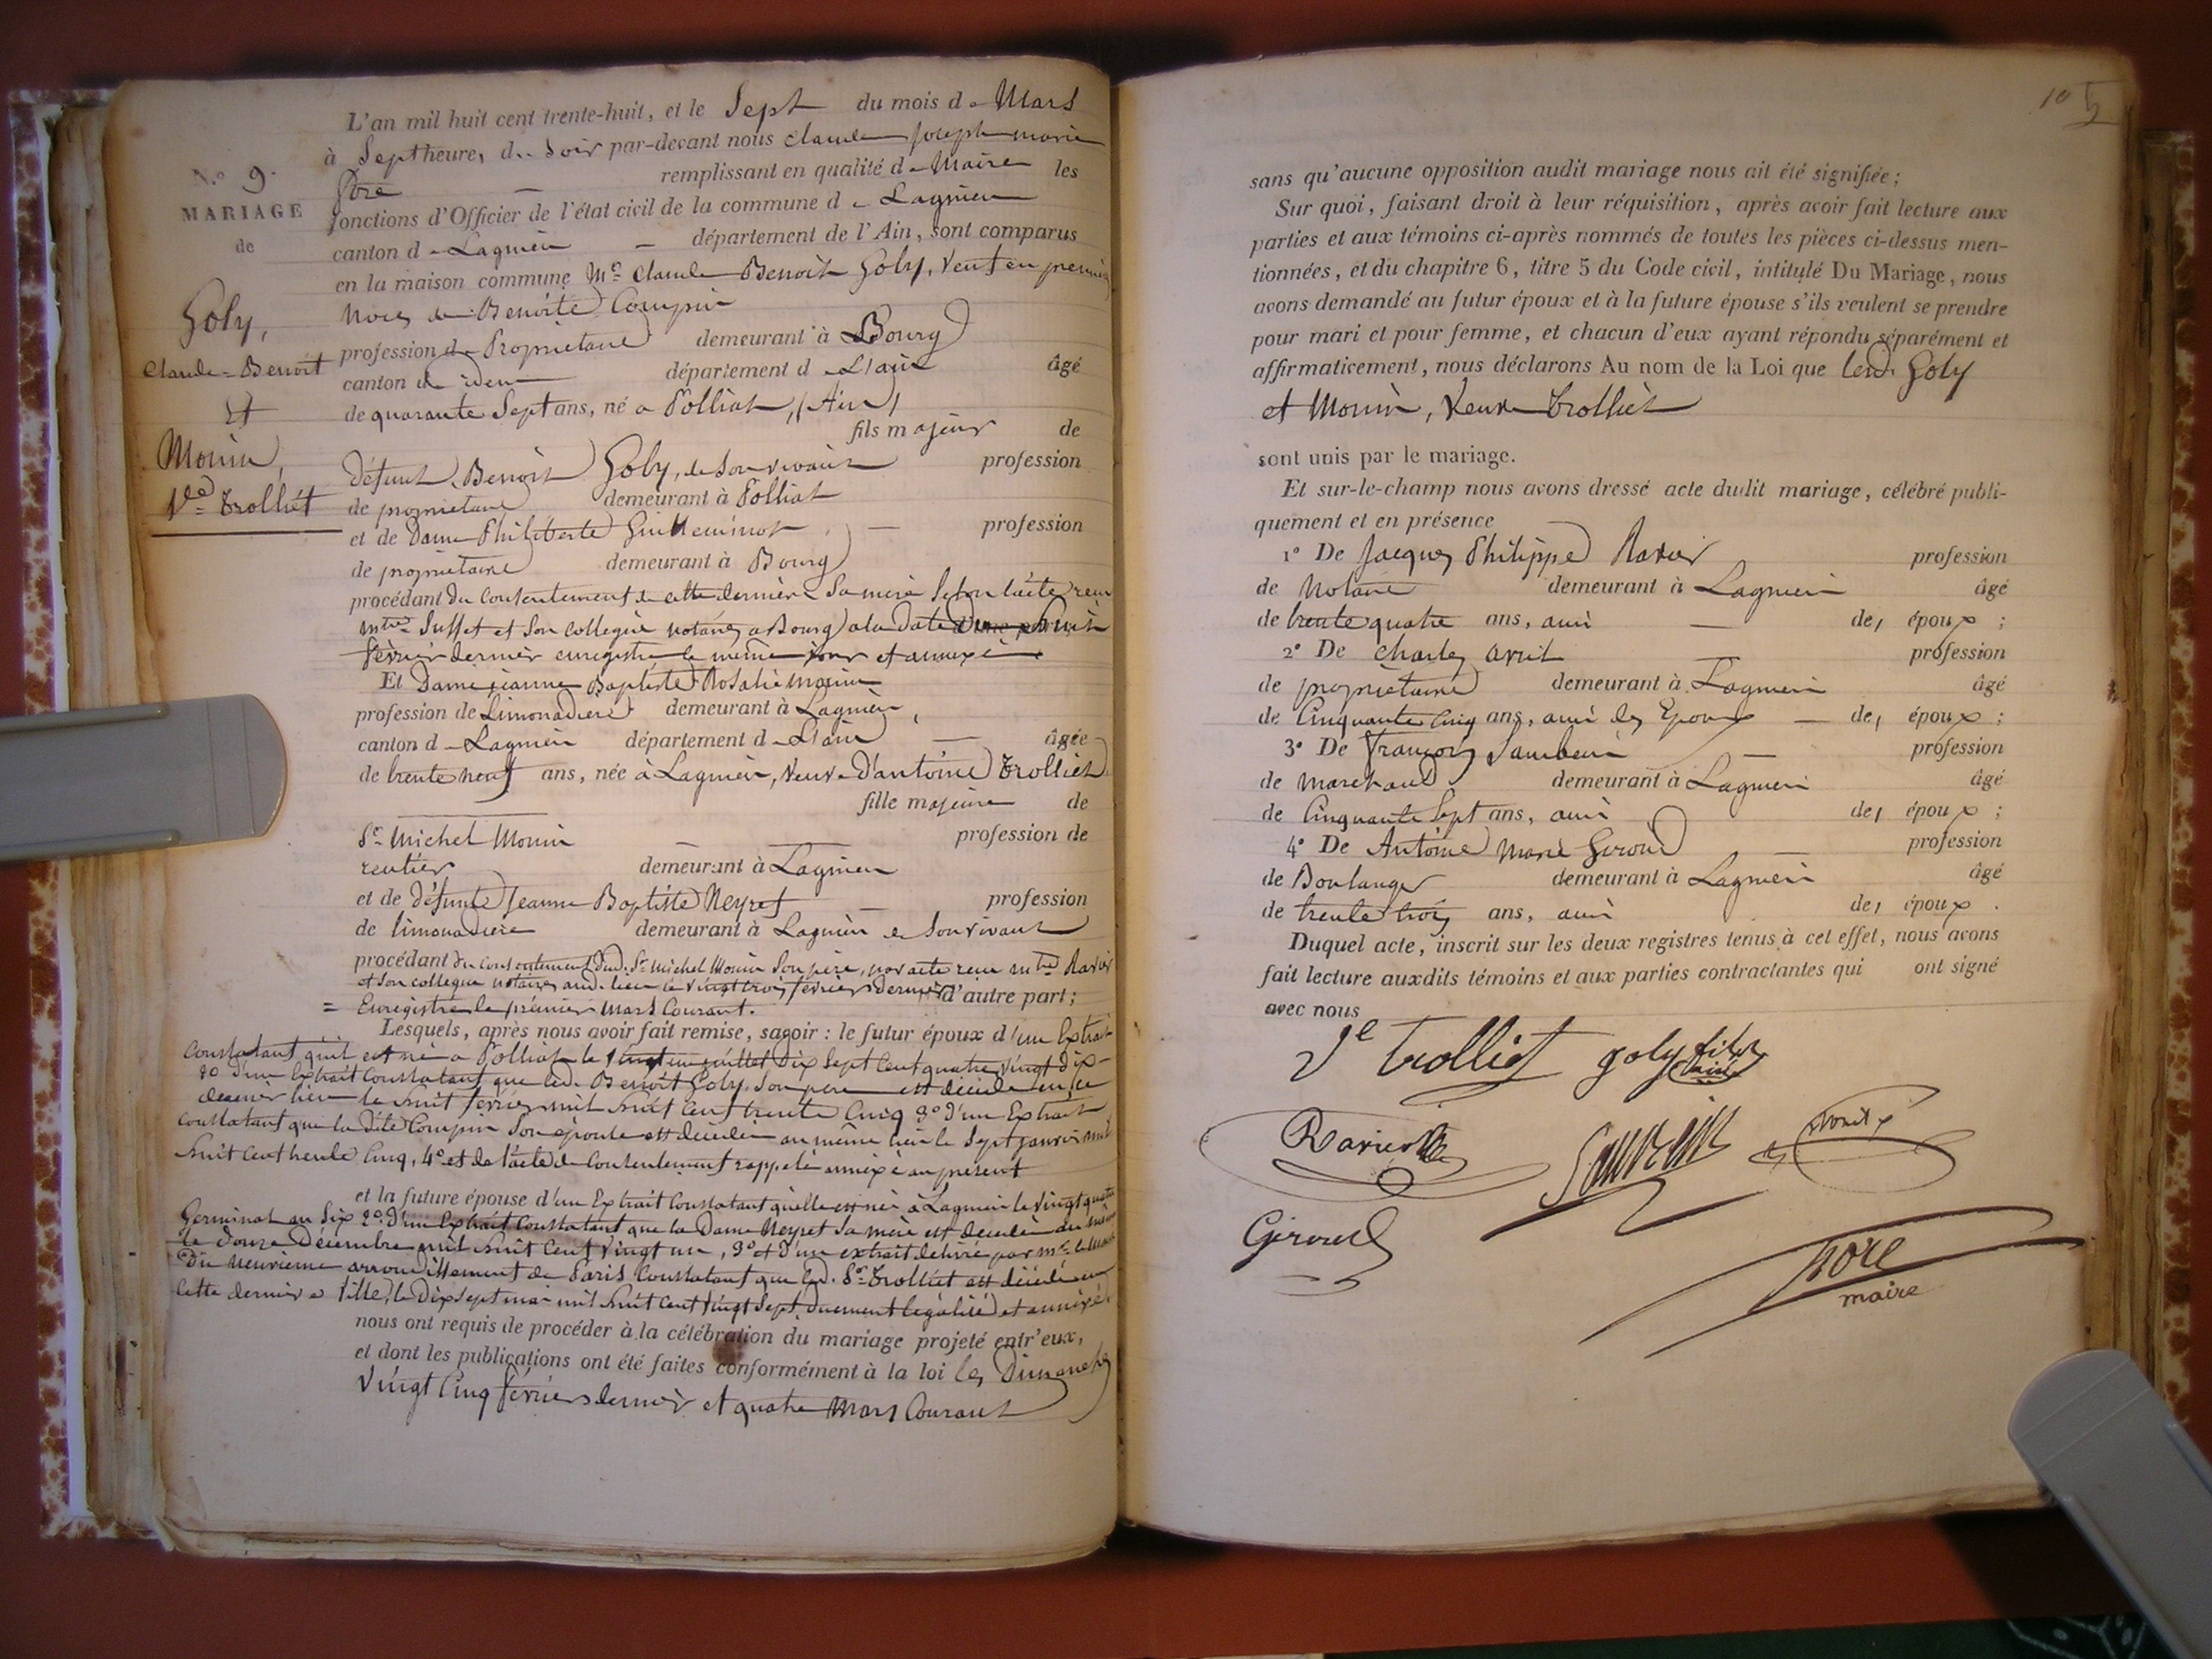 N.o 9.
MARIAGE
de
Goly,
Claude-Benoit
Et
Monin,
Ve Trolliet
L'an mil huit cent trente-huit, et le Sept du mois de Mars
à Sept heures du Soir par-devant nous Claude Joseph marie
remplissant en qualité de Maire les
fonctions d'Officier de l'état civil de la commune de Lagnieu
canton de Lagnieu département de l'Ain, sont comparus
en la maison commune Mr Claude Benoit Goly, veuf en premier
Noces de Benoite Compin
profession de Propriétaire demeurant à Bourg
canton d idem département de L'ain âgé
de quarante Sept ans, né a Polliat, (Ain)
fils majeur de
Défunt Benoit Goly, de Son vivant profession
de propriétaire demeurant à Polliat
et de Dame Philiberte Guilleminot profession
de propriétaire demeurant à Bourg
procédant du Consentement de cette dernière Sa mère Selon l'acte reçu
mtre et Son Collegue notaires a Bourg a la Date huit
février dernier enregistré le même jour et annexé
Et Dame jeanne Baptiste Rosalie monin
profession de Limonadiere demeurant à Lagnieu,
canton de Lagnieu département de L'ain âgée
de trente neuf ans, née à Lagnieu, veuve d'antoine Trolliet
fille majeure de
Sr Michel Monin profession de
rentier demeurant à Lagnieu
et de défunte Jeanne Baptiste Neyret profession
de limonadiere demeurant à Lagnieu de Son vivant
procédant du Consentement dud. Sr Michel Monin Son père, par acte reçu mtre Ravier
et Son collegue notaires aud. lieu le vingt trois février dernier d'autre part;
= Enregistré le premier Mars Courant.
Lesquels, après nous avoir fait remise, savoir : le futur époux d'un Extrait
Constatant qu'il est né a Polliat le vingt un juillet Dix Sept Cent quatre vingt dix-
2o d'un Extrait Constatant que led. Benoit Goly, Son père est décédé en ce
dernier lieu le huit février mil huit Cent trente Cinq 3o d'un Extrait
Constatant que la dite Compin Son épouse est décédée au même lieu le Sept janvier mil
huit Cent trente Cinq, 4o et de l'acte de Consentement rappelé annexé au présent
et la future épouse d'un Extrait Constatant qu'elle est née à Lagnieu le vingt quatre
Germinal an Six 2o d'un Extrait Constatant que la Dame Neyret Sa mère est décédée au même
le Douze Décembre mil huit Cent vingt un, 3o et d'un extrait délivré par mr le Maire
Du neuvième arrondissement de Paris Constatant que led. Sr Trolliet est décédé en
Cette dernière Ville, le Dix Sept mai mil huit Cent vingt Sept duement légalisé et annexé
nous ont requis de procéder à la célébration du mariage projeté entr'eux,
et dont les publications ont été faites conformément à la loi les Dimanches
Vingt Cinq février dernier et quatre Mars Courant
10
sans qu'aucune opposition audit mariage nous ait été signifiée;
Sur quoi, faisant droit à leur réquisition, après avoir fait lecture aux
parties et aux témoins ci-après nommés de toutes les pièces ci-dessus men-
tionnées, et du chapitre 6, titre 5 du Code civil, intitulé Du Mariage, nous
avons demandé au futur époux et à la future épouse s'ils veulent se prendre
pour mari et pour femme, et chacun d'eux ayant répondu séparément et
affirmativement, nous déclarons Au nom de la Loi que Lesd. Goly
et Monin, Veuve Trolliet
sont unis par le mariage.
Et sur-le-champ nous avons dressé acte dudit mariage, célébré publi-
quement et en présence
1o De Jacques Philippe Ravier profession
de Notaire demeurant à Lagnieu âgé
de trente quatre ans, ami des époux;
2o De Charles avril profession
de propriétaire demeurant à Lagnieu âgé
de Cinquante Cinq ans, ami des Epoux des époux;
3o De François profession
de marchand demeurant à Lagnieu âgé
de Cinquante Sept ans, ami des époux;
4o De Antoine Marie Giroud profession
de Boulanger demeurant à Lagnieu âgé
de trente trois ans, ami des époux.
Duquel acte, inscrit sur les deux registres tenus à cet effet, nous avons
fait lecture auxdits témoins et aux parties contractantes qui ont signé
avec nous
Ve Trolliet goly fils ainé
Ravier
Giroud
maire